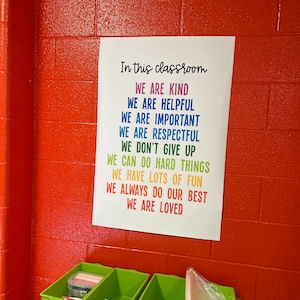 In this classroom
WE ARE KIND
WE ARE HELPFUL
WE ARE IMPORTANT
WE ARE RESPECTFUL
WE DON'T GIVE UP
WE CAN DO HARD THINGS
WE HAVE LOTS OF FUN
WE ALWAYS DO OUR BEST
WE ARE LOVED